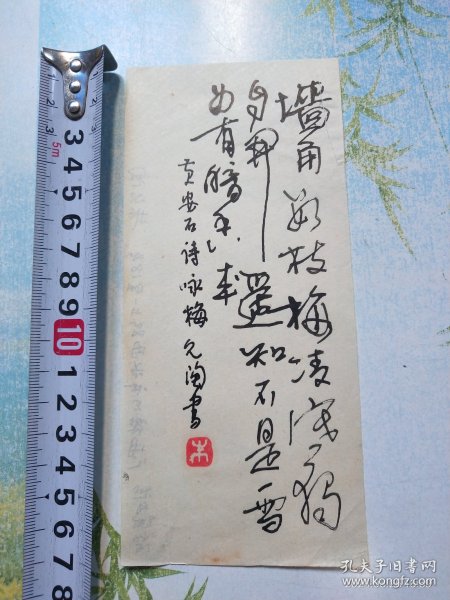 墙角数枝梅凌寒独
自开遥知不是雪
为有暗香来
王安石诗咏梅 允陶书
朱
5m
3
4
5
6
7
8
9
10
1
2
3
4
5
6
7
8
孔夫子旧书网
www.kongfz.com